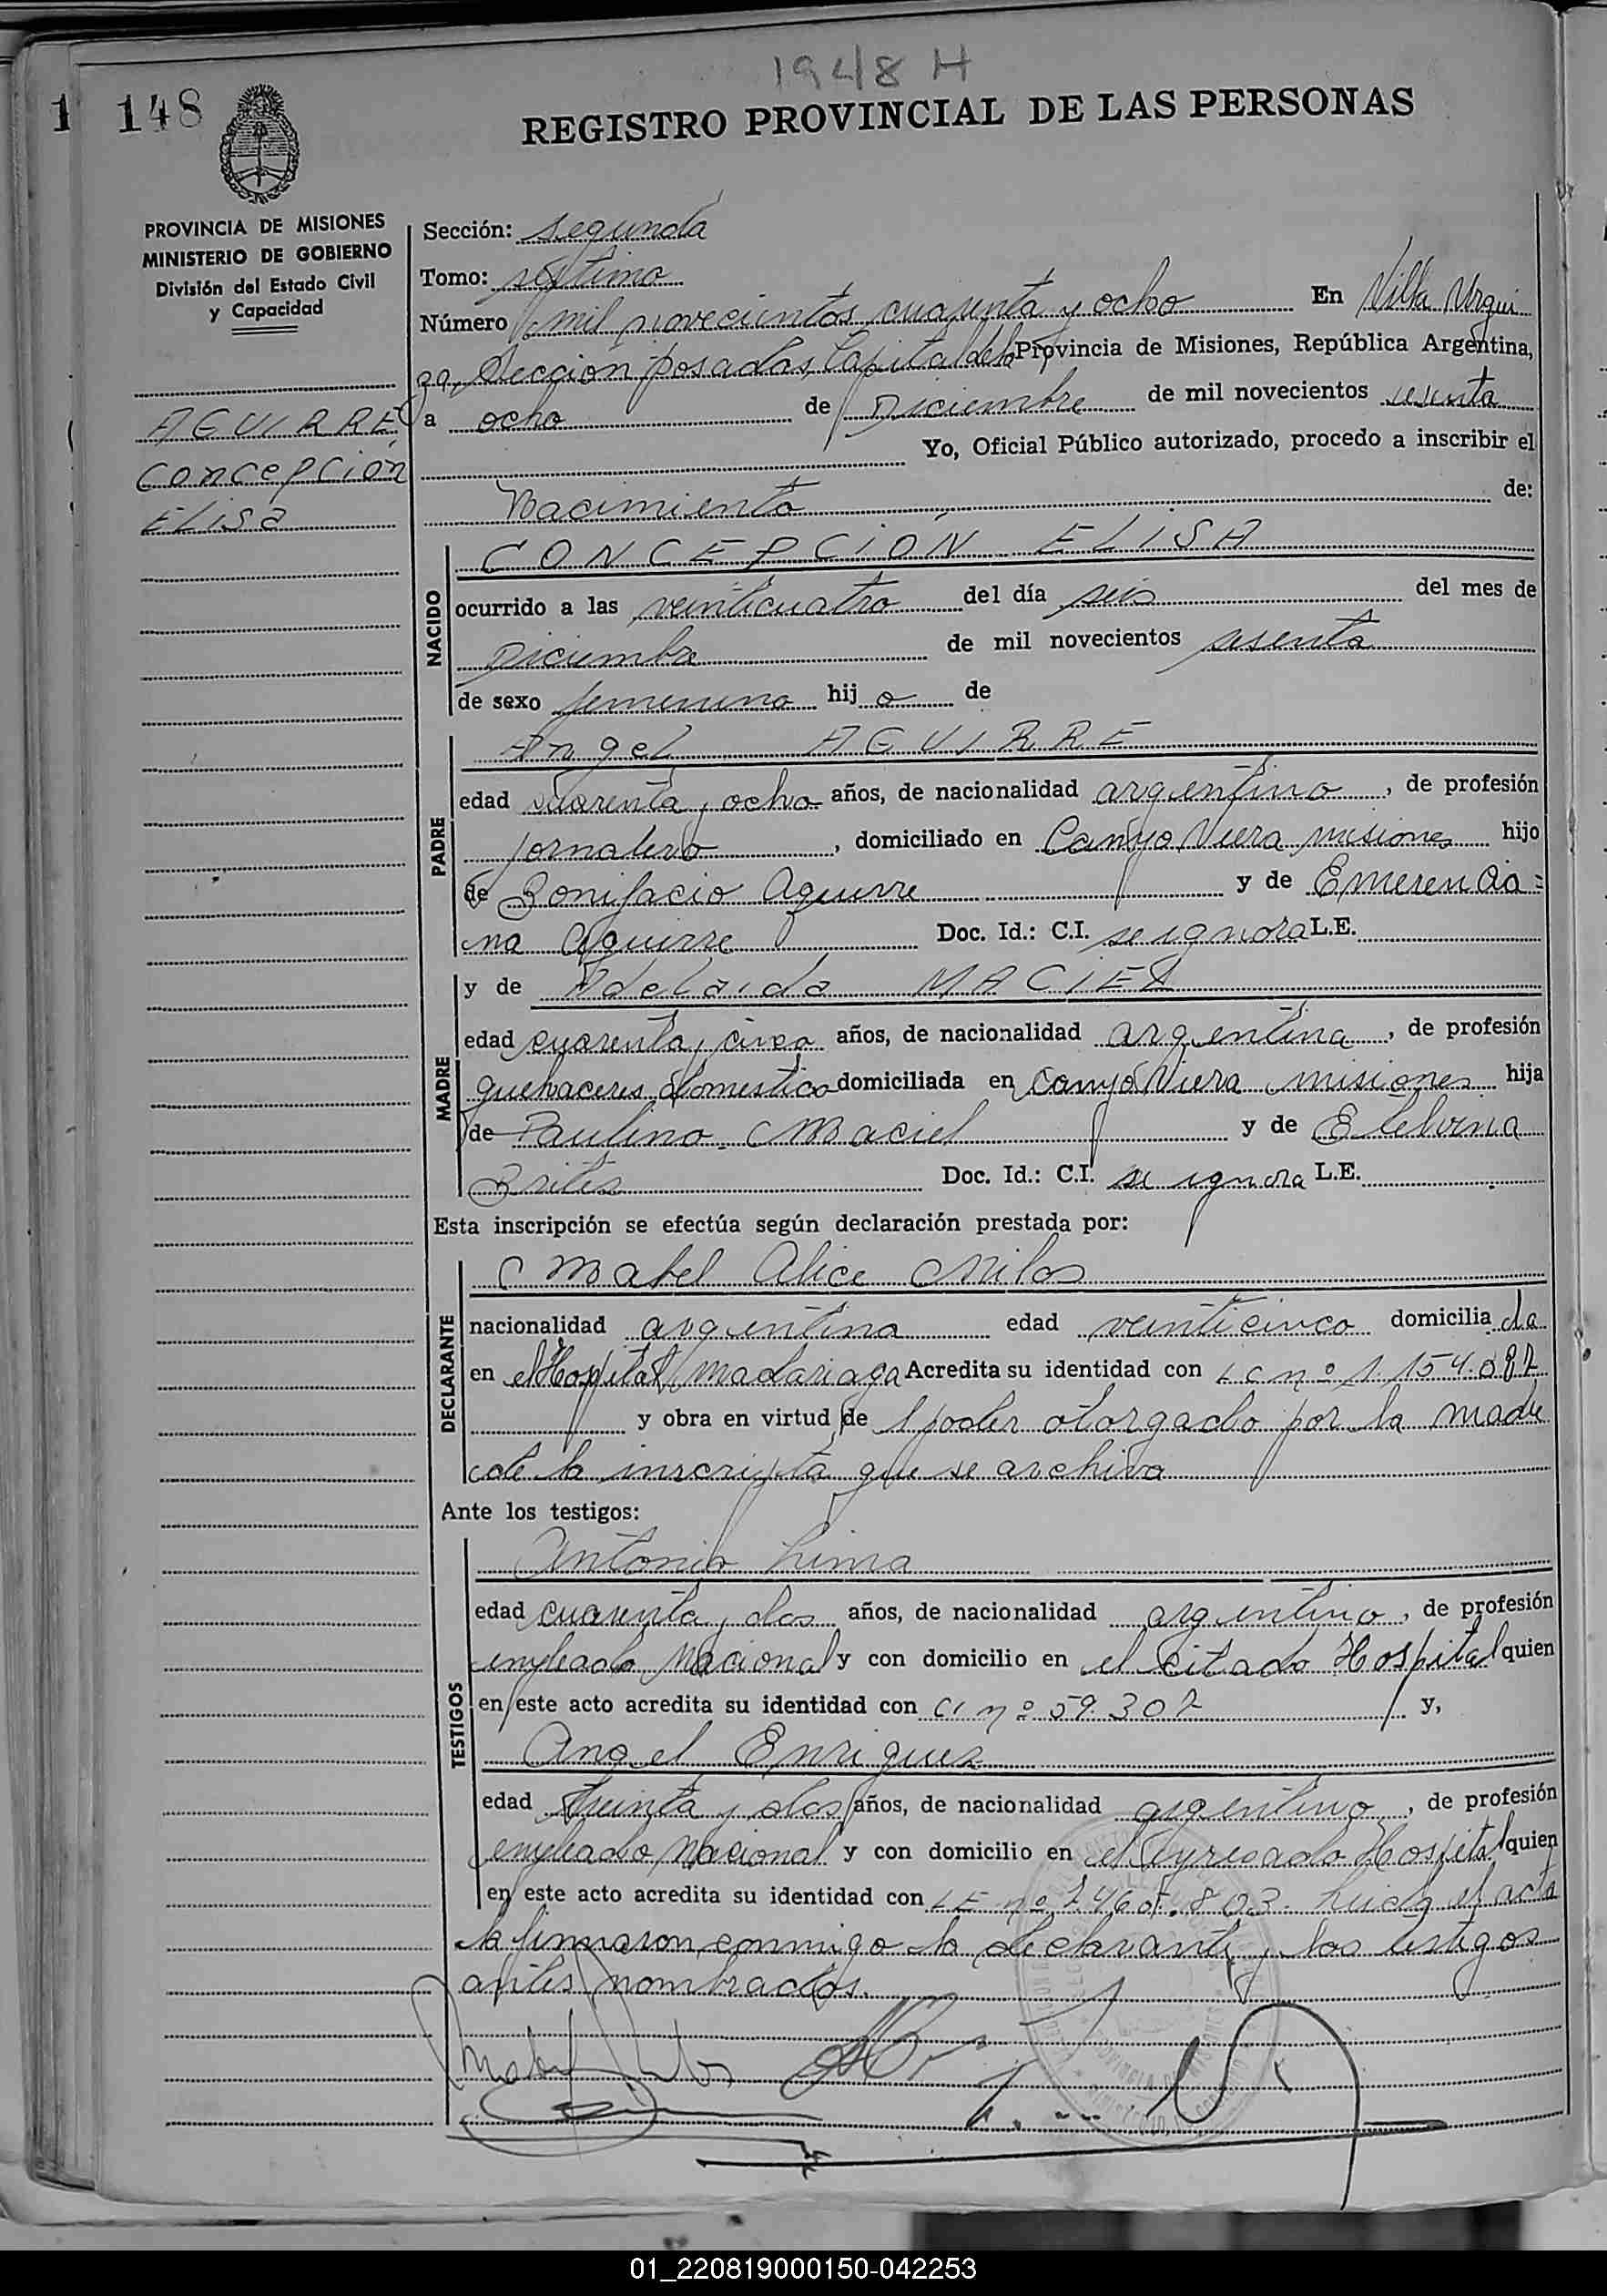 1948 H
1 148
REGISTRO PROVINCIAL DE LAS PERSONAS
PROVINCIA DE MISIONES
MINISTERIO DE GOBIERNO
División del Estado Civil
y Capacidad
AGUIRRE
Concepción
ELisa
Sección: segunda
Tomo: séptimo
Número mil novecientos cuarenta y ocho En Villa Urqui
za, Sección posadas, Capital de la Provincia de Misiones, República Argentina,
a ocho de Diciembre de mil novecientos sesenta
Yo, Oficial Público autorizado, procedo a inscribir el
Nacimiento de:
NACIDO
CONCEPCIÓN ELISA
ocurrido a las veinticuatro del día seis del mes de
Diciembre de mil novecientos sesenta
de sexo femenino hij a de
PADRE
Angel AGUIRRE
edad cuarenta y ocho años, de nacionalidad argentino, de profesión
jornalero, domiciliado en Campo Viera misiones hijo
de Bonifacio Aguirre y de Emerencia=
na Aguirre Doc. Id.: C.I. se ignora L.E.
MADRE
y de Adelaida MACIEL
edad cuarenta y cinco años, de nacionalidad argentina, de profesión
quehaceres domestico domiciliada en Campo Viera misiones hija
de Paulino Maciel y de Etelvina
Brites Doc. Id.: C.I. se ignora L.E.
Esta inscripción se efectúa según declaración prestada por:
DECLARANTE
Mabel Alice Milos
nacionalidad argentina edad veinticinco domicilia da
en el Hospital Madariaga Acredita su identidad con LC nº 1.154.087
y obra en virtud de l poder otorgado por la madre
de la inscripta que se archiva
Ante los testigos:
TESTIGOS
Antonio Lima
edad cuarenta y dos años, de nacionalidad argentino, de profesión
empleado Nacional y con domicilio en el citado Hospital quien
en este acto acredita su identidad con CI nº 59.307 y,
Angel Enriquez
edad treinta y dos años, de nacionalidad argentino, de profesión
empleado Nacional y con domicilio en el expresado Hospital quien
en este acto acredita su identidad con LE nº 7.465.803. Leida el acta
la firmaron conmigo la declarante y los testigos
antes nombrados.
01_220819000150-042253